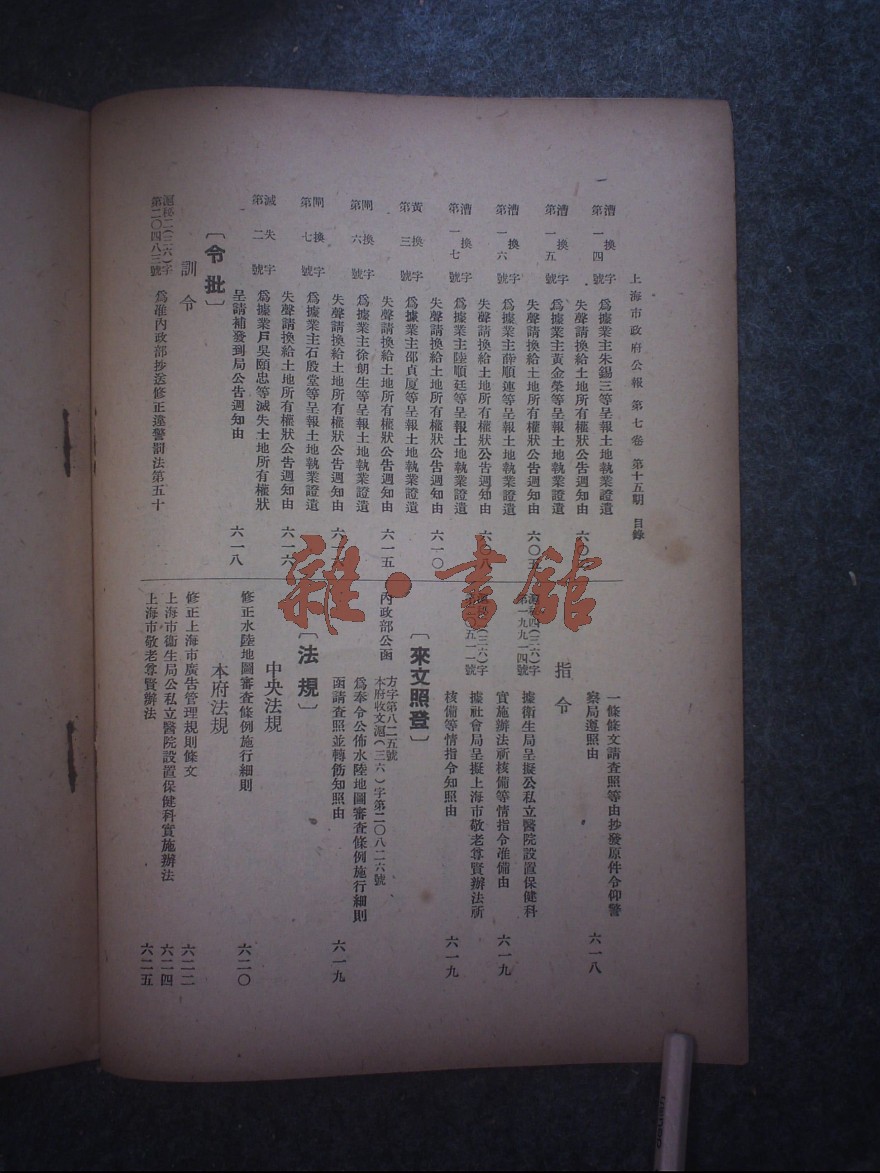 上海市政府公報 第七卷 第十五期 目錄
漕換字
第一四號
爲據業主朱錫三等呈報土地執業證遺
失聲請換給土地所有權狀公告週知由
漕換字
第一五號
爲據業主黃金榮等呈報土地執業證遺
失聲請換給土地所有權狀公告週知由 六〇五
漕換字
第一六號
爲據業主薛順連等呈報土地執業證遺
失聲請換給土地所有權狀公告週知由 六〇八
漕換字
第一七號
爲據業主陸順廷等呈報土地執業證遺
失聲請換給土地所有權狀公告週知由 六一〇
黃換字
第三號
爲據業主邵貞廈等呈報土地執業證遺
失聲請換給土地所有權狀公告週知由 六一五
閘換字
第六號
爲據業主徐朗生等呈報土地執業證遺
失聲請換給土地所有權狀公告週知由
閘換字
第七號
爲據業主石殷堂等呈報土地執業證遺
失聲請換給土地所有權狀公告週知由 六一六
滅失字
第二號
爲據業戶吳頤忠等滅失土地所有權狀
呈請補發到局公告週知由 六一八
〔令批〕
訓令
滬秘二(三六)字
第二〇四八三號
爲准內政部抄送修正違警罰法第五十
一條條文請查照等由抄發原件令仰警
察局遵照由 六一八
指令
滬秘四(三六)字
第一九九一四號
據衛生局呈擬公私立醫院設置保健科
實施辦法祈核備等情指令准備由 六一九
據社會局呈擬上海市敬老尊賢辦法祈
核備等情指令知照由 六一九
〔來文照登〕
內政部公函
方字第八二五號
本府收文滬(三六)字第二〇八二六號
爲奉令公佈水陸地圖審查條例施行細則
函請查照並轉飭知照由 六一九
〔法規〕
中央法規
修正水陸地圖審查條例施行細則 六二〇
本府法規
修正上海市廣告管理規則條文 六二二
上海市衛生局公私立醫院設置保健科實施辦法 六二四
上海市敬老尊賢辦法 六二五
雜·書館